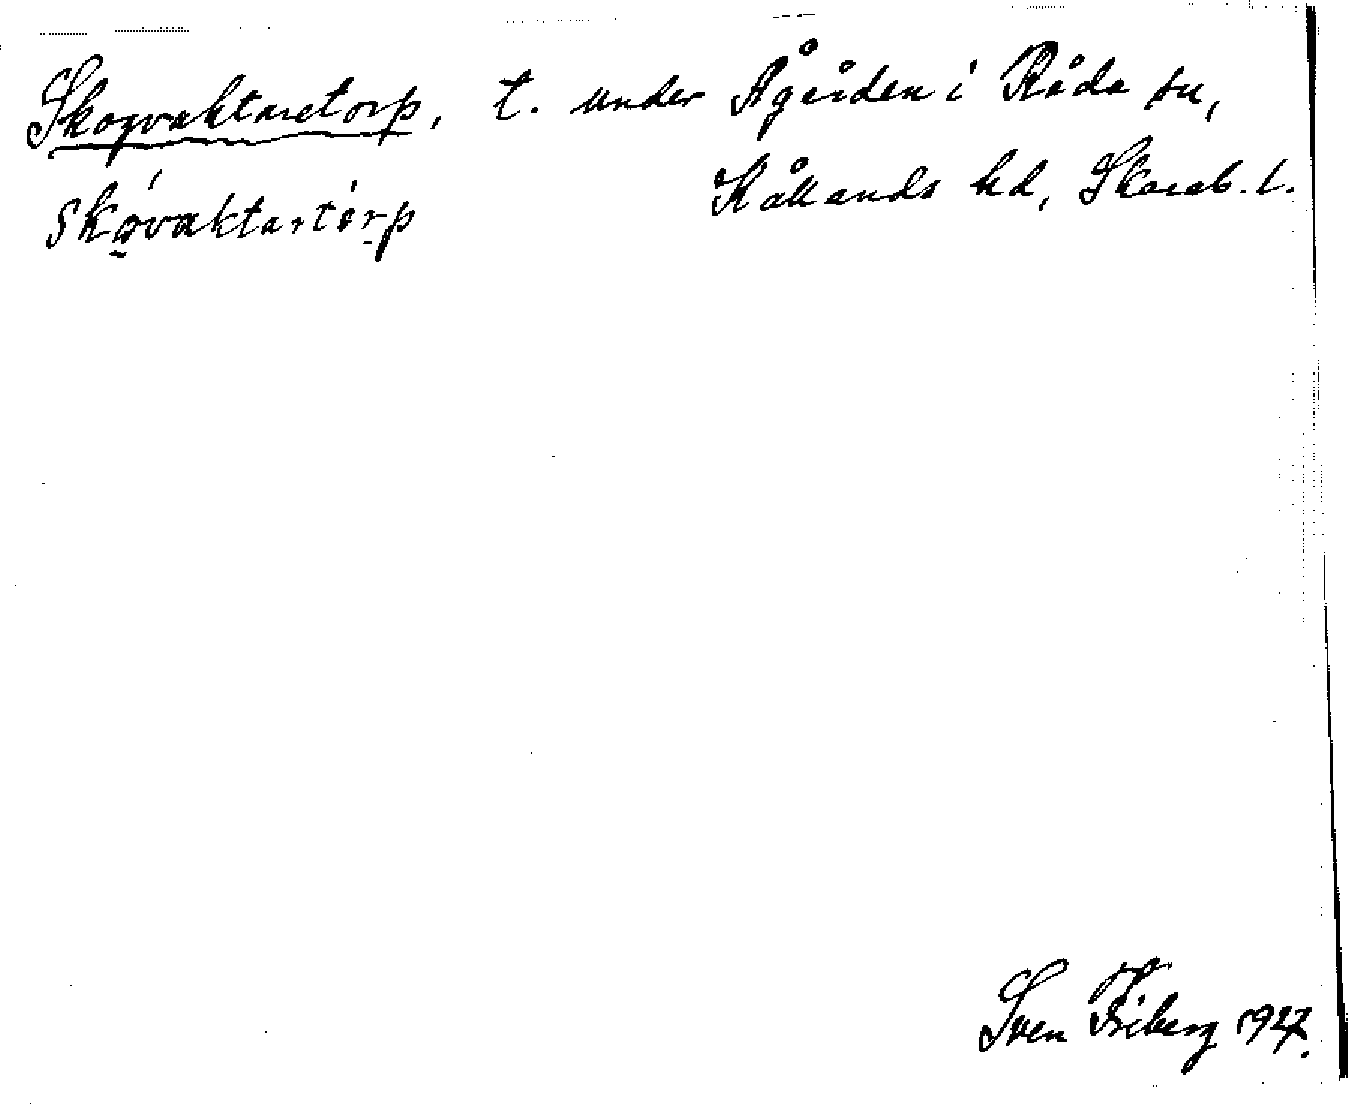 Skogvaktaretorp, t. under Ågården i Råda sn,
Kållands hd, Skarab. l.
Skovaktartorp
Sven Friberg 1927.